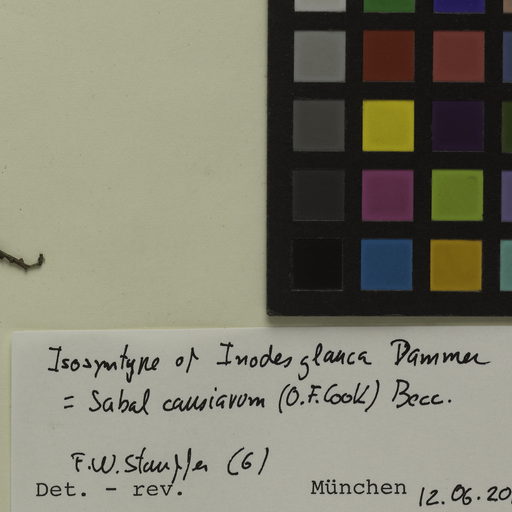 Isosyntype of Inodes glauca Dammer
= Sabal causiarum (O.F.Cook) Becc.
F.W. Stauffer (G)
Det. - rev. München 12.06.20